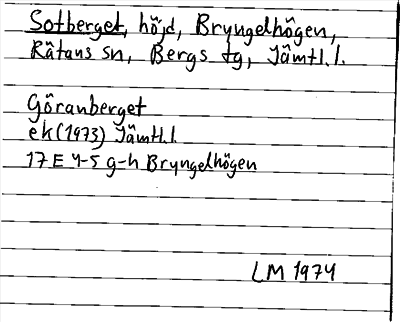 Sotberget, höjd, Bryngelhögen,
Rätans sn, Bergs tg, Jämtl.l.
Göranberget
ek (1973) Jämtl.l
17 E 4-5 g-h Bryngelhögen
LM 1974